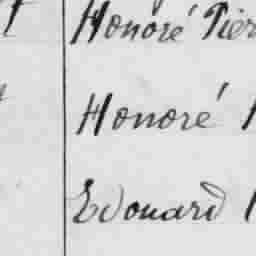 Honoré Pier
Honoré
Edouard